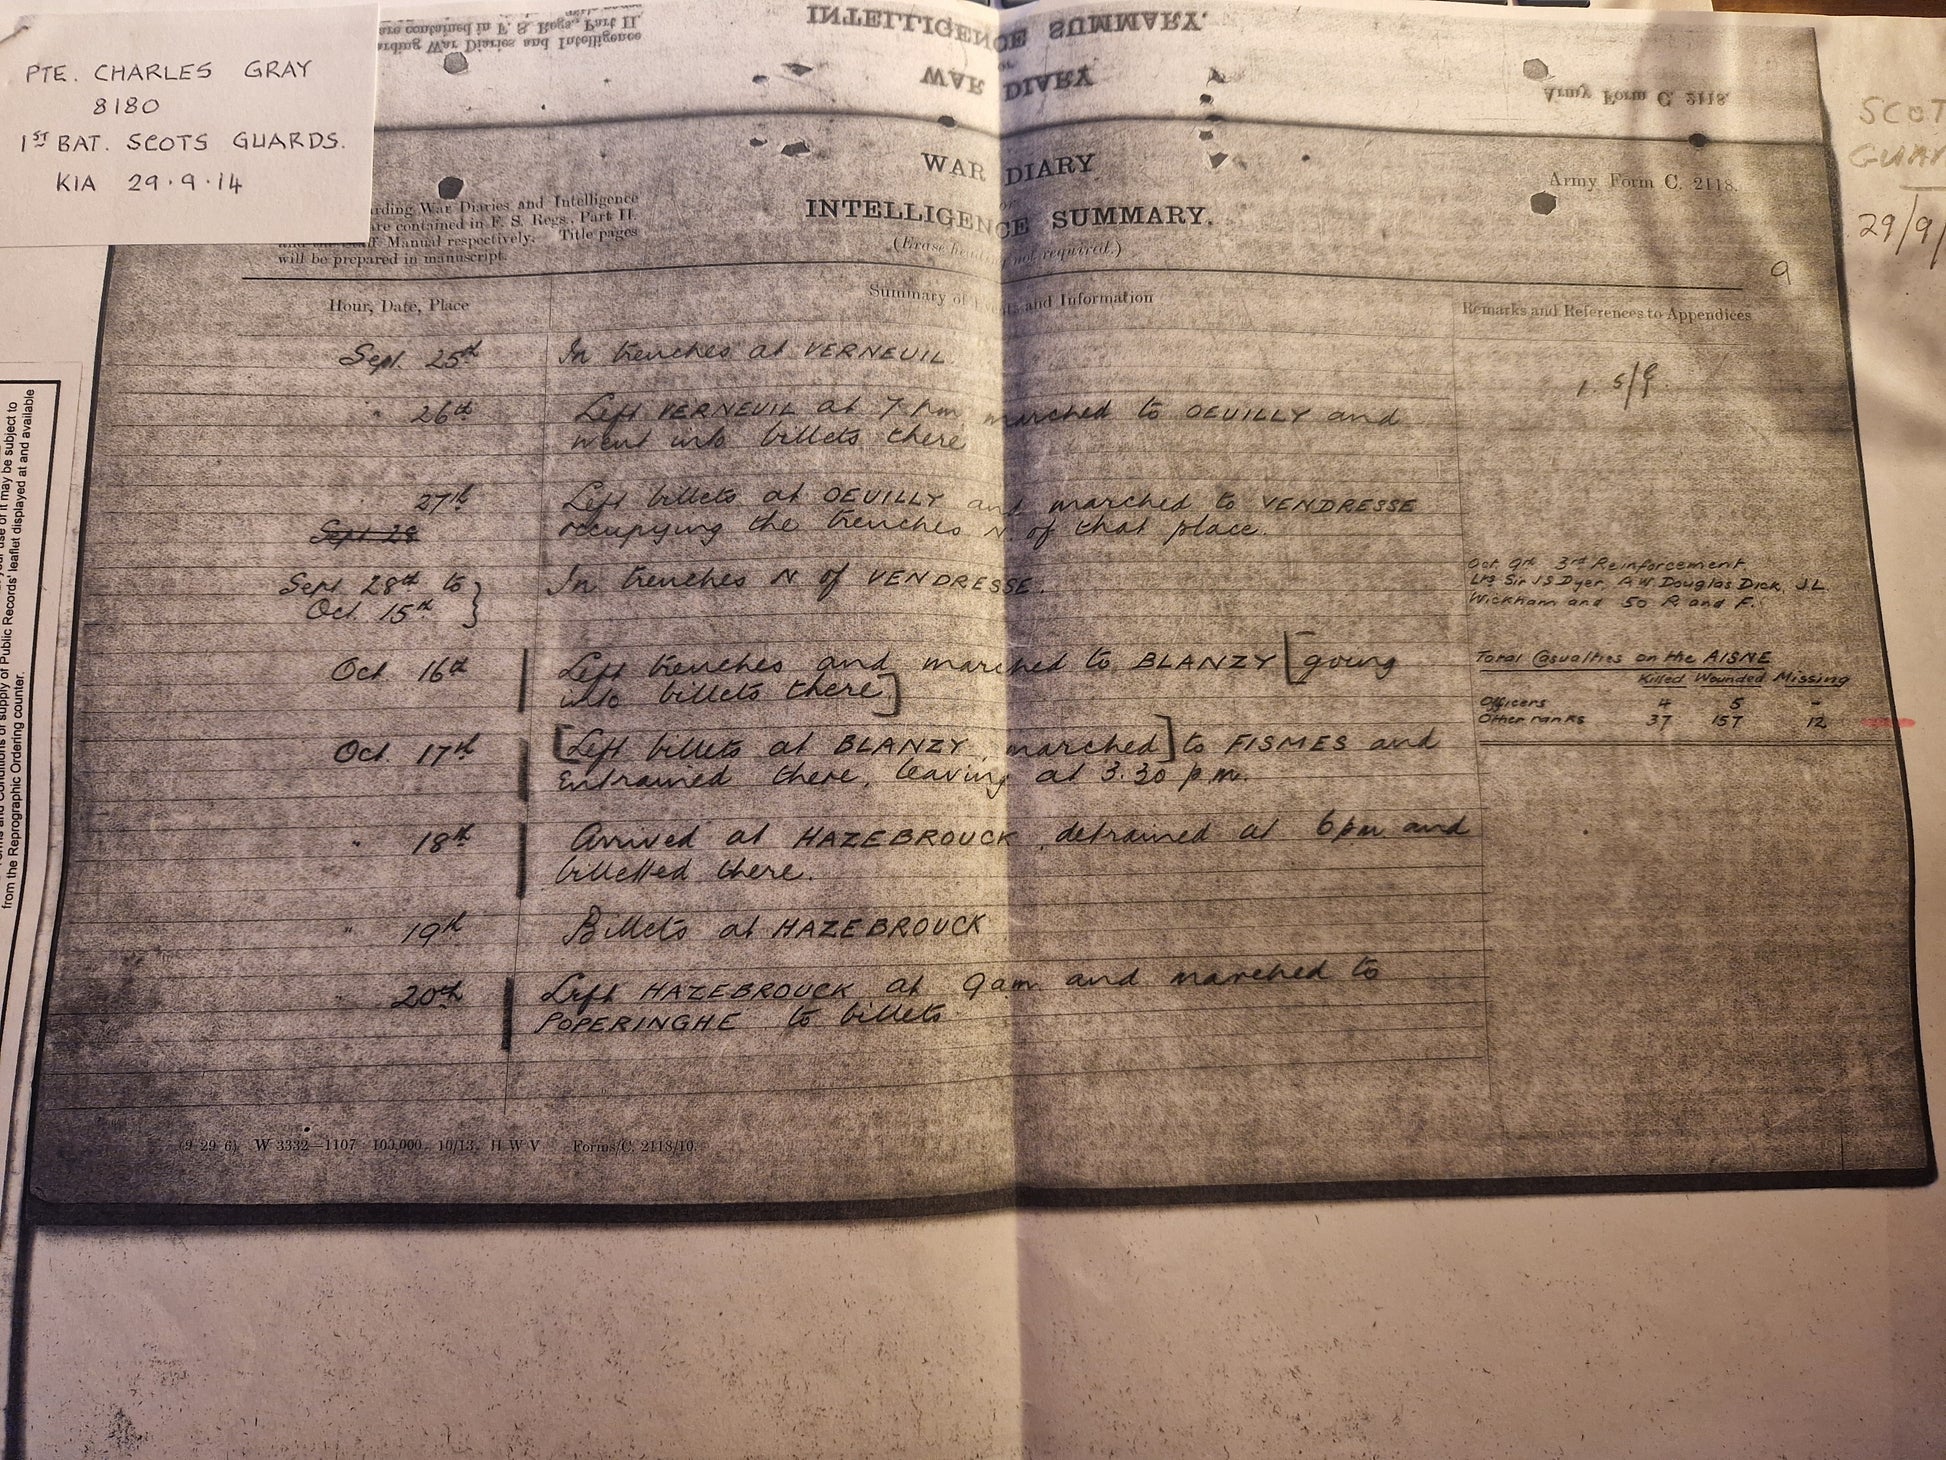 PTE. CHARLES GRAY
8180
1ST BAT. SCOTS GUARDS.
KIA 29.9.14
are contained in F. S. Regs., Part II.
rding War Diaries and Intelligence
INTELLIGENCE SUMMARY.
WAR DIARY
Army Form C. 2118.
SCOT
GUAR
29/9/
WAR DIARY
or
INTELLIGENCE SUMMARY.
(Erase head not required.)
Army Form C. 2118.
rding War Diaries and Intelligence
are contained in F. S. Regs., Part II.
Manual respectively. Title pages
will be prepared in manuscript.
9
Hour, Date, Place
Summary of Events and Information
Remarks and References to Appendices
Sept. 25th In trenches at VERNEUIL
1. S/G.
" 26th Left VERNEUIL at 7 pm marched to OEUILLY and
went into billets there
27th Left billets at OEUILLY and marched to VENDRESSE
Sept 28 occupying the trenches N. of that place.
Sept 28th to } In trenches N of VENDRESSE.
Oct. 15th
Oct 9th 3rd Reinforcement.
Lts Sir J S Dyer, A W. Douglas Dick, J. L.
Wickham and 50 R and F.
Oct 16th Left trenches and marched to BLANZY [going
into billets there]
Total Casualties on the AISNE
Killed Wounded Missing
Officers 4 5 -
Other ranks 37 157 12
Oct 17th [Left billets at BLANZY, marched] to FISMES and
Entrained there, leaving at 3.30 p.m.
" 18th Arrived at HAZEBROUCK, detrained at 6 pm and
billetted there.
" 19th Billets at HAZEBROUCK
20th Left HAZEBROUCK at 9 am. and marched to
POPERINGHE to billets
(9 29 6) W 3332—1107 100,000 10/13. H W V Forms/C. 2118/10.
your use of it may be subject to
Terms and Conditions of supply of Public Records' leaflet displayed at and available
from the Reprographic Ordering counter.